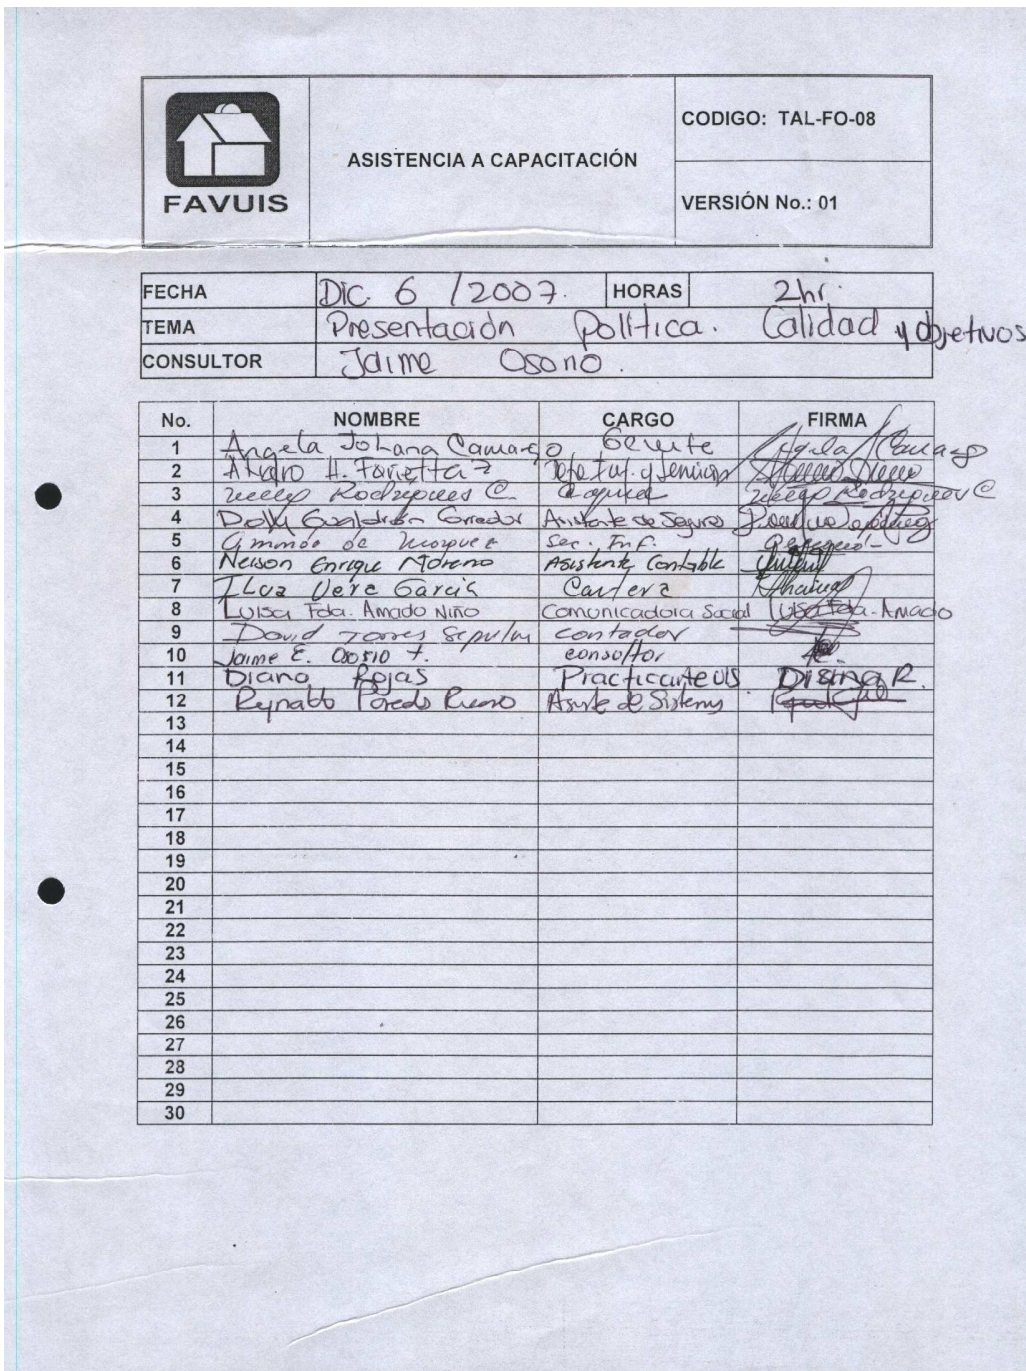 FAVUIS
ASISTENCIA A CAPACITACIÓN
CODIGO: TAL-FO-08
VERSIÓN No.: 01
FECHA Dic. 6 / 2007. HORAS 2hr.
TEMA Presentación Política. Calidad y objetivos
CONSULTOR Jaime Osorio.
No. NOMBRE CARGO FIRMA
1 Angela Johana Camargo Gerente Angela Camargo
2 Alvaro H.
3 Rodriguez C. Rodriguez C
4 Dolly Gualdrón Corredor Asistente de Seguros
5 de Sec. Inf.
6 Nelson Enrique Moreno Asistente Contable
7 Luz García Cartera
8 Luisa Fda. Amado Niño Comunicadora Social Luisa Fda. Amado
9 David Torres contador
10 Jaime E. Osorio T. consultor
11 Diana Rojas Practicante UIS Diana R.
12 Reynaldo de Sistemas
13
14
15
16
17
18
19
20
21
22
23
24
25
26
27
28
29
30